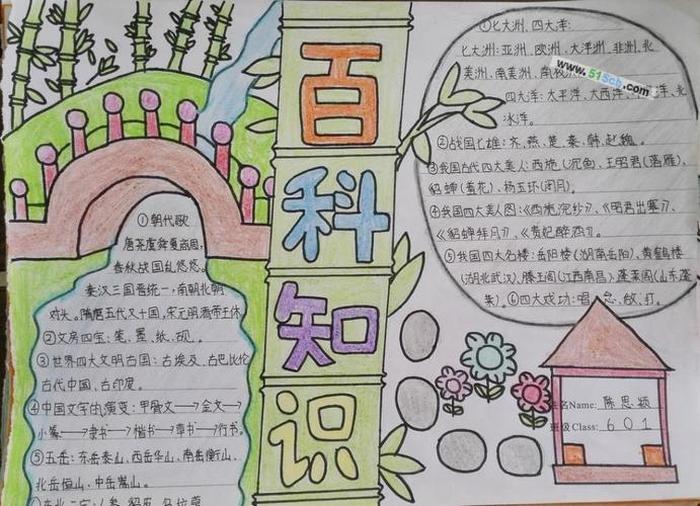 百科知识
①朝代歌
唐尧虞舜夏商周,
春秋战国乱悠悠。
秦汉三国晋统一,南朝北朝
对头。隋唐五代又十国,宋元明清帝王休。
②文房四宝:笔、墨、纸、砚。
③世界四大文明古国:古埃及、古巴比伦
古代中国、古印度。
④中国文字的演变:甲骨文→金文→
小篆→隶书→楷书→草书→行书。
⑤五岳:东岳泰山、西岳华山、南岳衡山、
北岳恒山、中岳嵩山。
①七大洲、四大洋:
七大洲:亚洲、欧洲、大洋洲、非洲、北
美洲、南美洲、南极
www.515cb.com
四大洋:太平洋、大西洋、洋、北
冰洋。
②战国七雄:齐、燕、楚、秦、韩、赵、魏。
③我国古代四大美人:西施(沉鱼)、王昭君(落雁)、
貂蝉(羞花)、杨玉环(闭月)。
④我国四大美人图:《西施浣纱》、《明君出塞》、
《貂蝉拜月》、《贵妃醉酒》。
⑤我国四大名楼:岳阳楼(湖南岳阳)、黄鹤楼
(湖北武汉)、滕王阁(江西南昌)、蓬莱阁(山东蓬
莱)。⑥四大戏功:唱、念、做、打。
姓名Name: 陈思颖
班级Class: 601